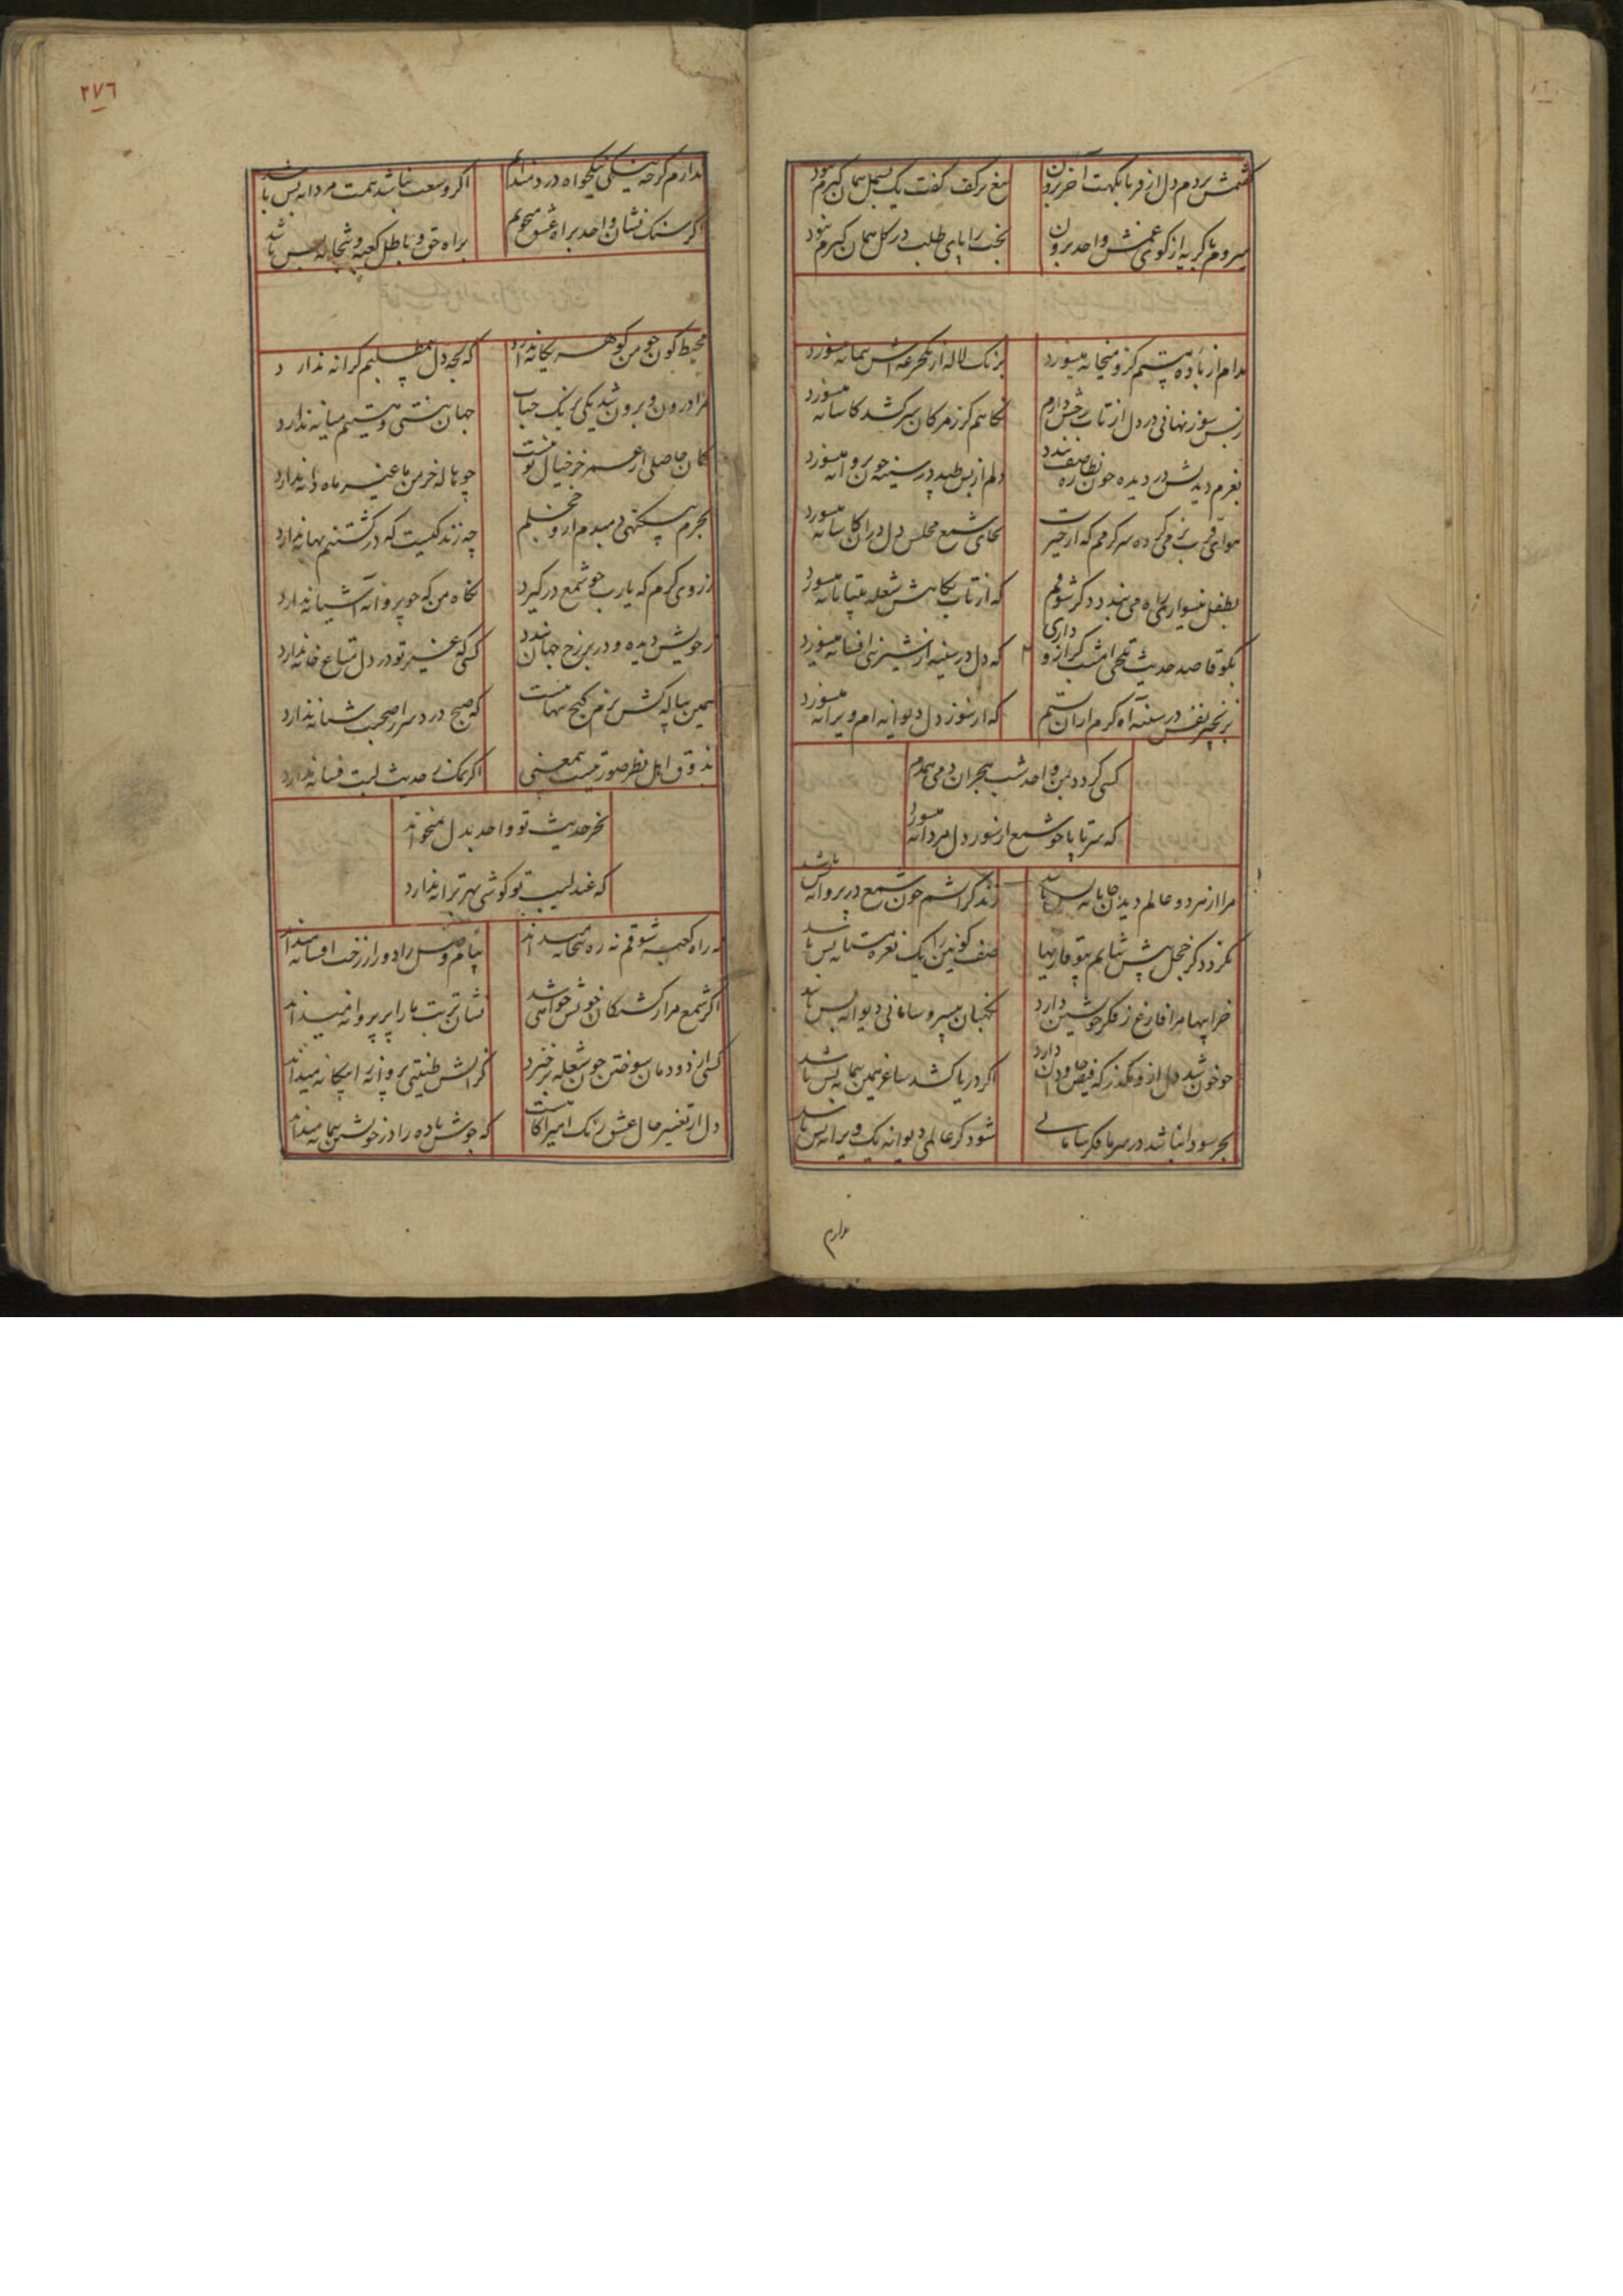 بردم دل از و با نکهت آخر برون
تیغ بر کف گفت یک بسمل همان گیرم نبود
میروم با گریه از کوی غمش واحد برون
بخت را پای طلب در گل همان گیرم نبود
مدام از باده مستم کزو میخانه میسوزد
برنگ لاله از یکجرعه اش پیمانه میسوزد
ز بس سوز نهانی در دل از تاب رخش دارم
نگاهم کز مژگان سر کشد کاسانه میسوزد
بعزم دیدنش در دیده چون نظاره صف بندد
دلم از بس طپد در سینه چون پروانه میسوزد
هوای قرب بزمی کرده سرگرمم که از حیرت
بجای شمع محفل دل در آن کاشانه میسوزد
بطفل نیسواری راه می بندد دگر شوقم
که از تاب نگاهش شعله بیتابانه میسوزد
بگو قاصد حدیث تلخی امشب گر ازو داری
که دل در سینه از شیرینی افسانه میسوزد
نفس در سینه آه گرم
که از سوز دل دیوانه ام ویرانه میسوزد
کسی گردد بمن واحد شب هجران دمی همدم
که سر تا پا چو شمع از سوز دل مردانه میسوزد
مرا از هر دو عالم دیدن جانانه بس باشد
زند گر آتشم چون شمع در پروانه بس باشد
نگردد گر خجل پیش شتابم بیوقاریها
صف کونین را یک نعره مستانه بس باشد
خرابیها مرا فارغ ز فکر خویشتن دارد
نگهبان بیسر و سامانی دیوانه بس باشد
چو خون شد دل ازو مگذر که فیض جاودان دارد
اگر دریا کشد ساغر همین پیمانه بس باشد
بجز سودا نباشد در سر ما فکر سامانی
شود گر عالمی دیوانه یک ویرانه بس باشد
ندارم
٢٧٦
ندارم گرچه نیکی نیکخواه دردمندانم
اگر وسعت نباشد همت مردانه بس باشد
اگر سنگ نشان واحد براه عشق میجویم
براه حق و باطل کعبه و بتخانه بس باشد
محیط کون چو من گوهر یگانه ندارد
که بجز دل بیطلبم کرانه ندارد
مرا درون و برون شد یکی برنگ حباب
جهان هستی و نیستیم میانه ندارد
گمان حاصلی از عمر جز خیال تو نیست
چو هاله خرمن ما غیر ماه دانه ندارد
بجرم بیگنهی میدم ازو خجلم
چه زندگیست که در کشتنم بهانه ندارد
ز روی گرم که یارب چو شمع درگیرد
نگاه من که چو پروانه آشیانه ندارد
ز خویش دیده و در بر رخ جهان بندد
کسی که غیر تو در دل متاع خانه ندارد
همین پیاله کش بزم گنج تنهاییست
که صبح درد سر صحبت شبانه ندارد
بذوق اهل نظر صورتیست بیمعنی
اگر نمک ز حدیث لبت فسانه ندارد
بجز حدیث تو واحد بدل نمیخواند
که عندلیب تو گوشی بهر ترانه ندارد
نه راه کعبه شوقم نه ره بتخانه میداند
پیام وصل را دور از رخت افسانه میداند
اگر شمع مرا از کشتگان خویش خواهی شد
نشان تربت ما را پر پروانه میداند
کسی از دودمان سوختن چون شعله برخیزد
کز آتش طینتی پروانه را بیگانه میداند
دل از تغییر حال عشق رنگ آمیز آگاهست
که جوش باده را در خویشتن پیمانه میداند